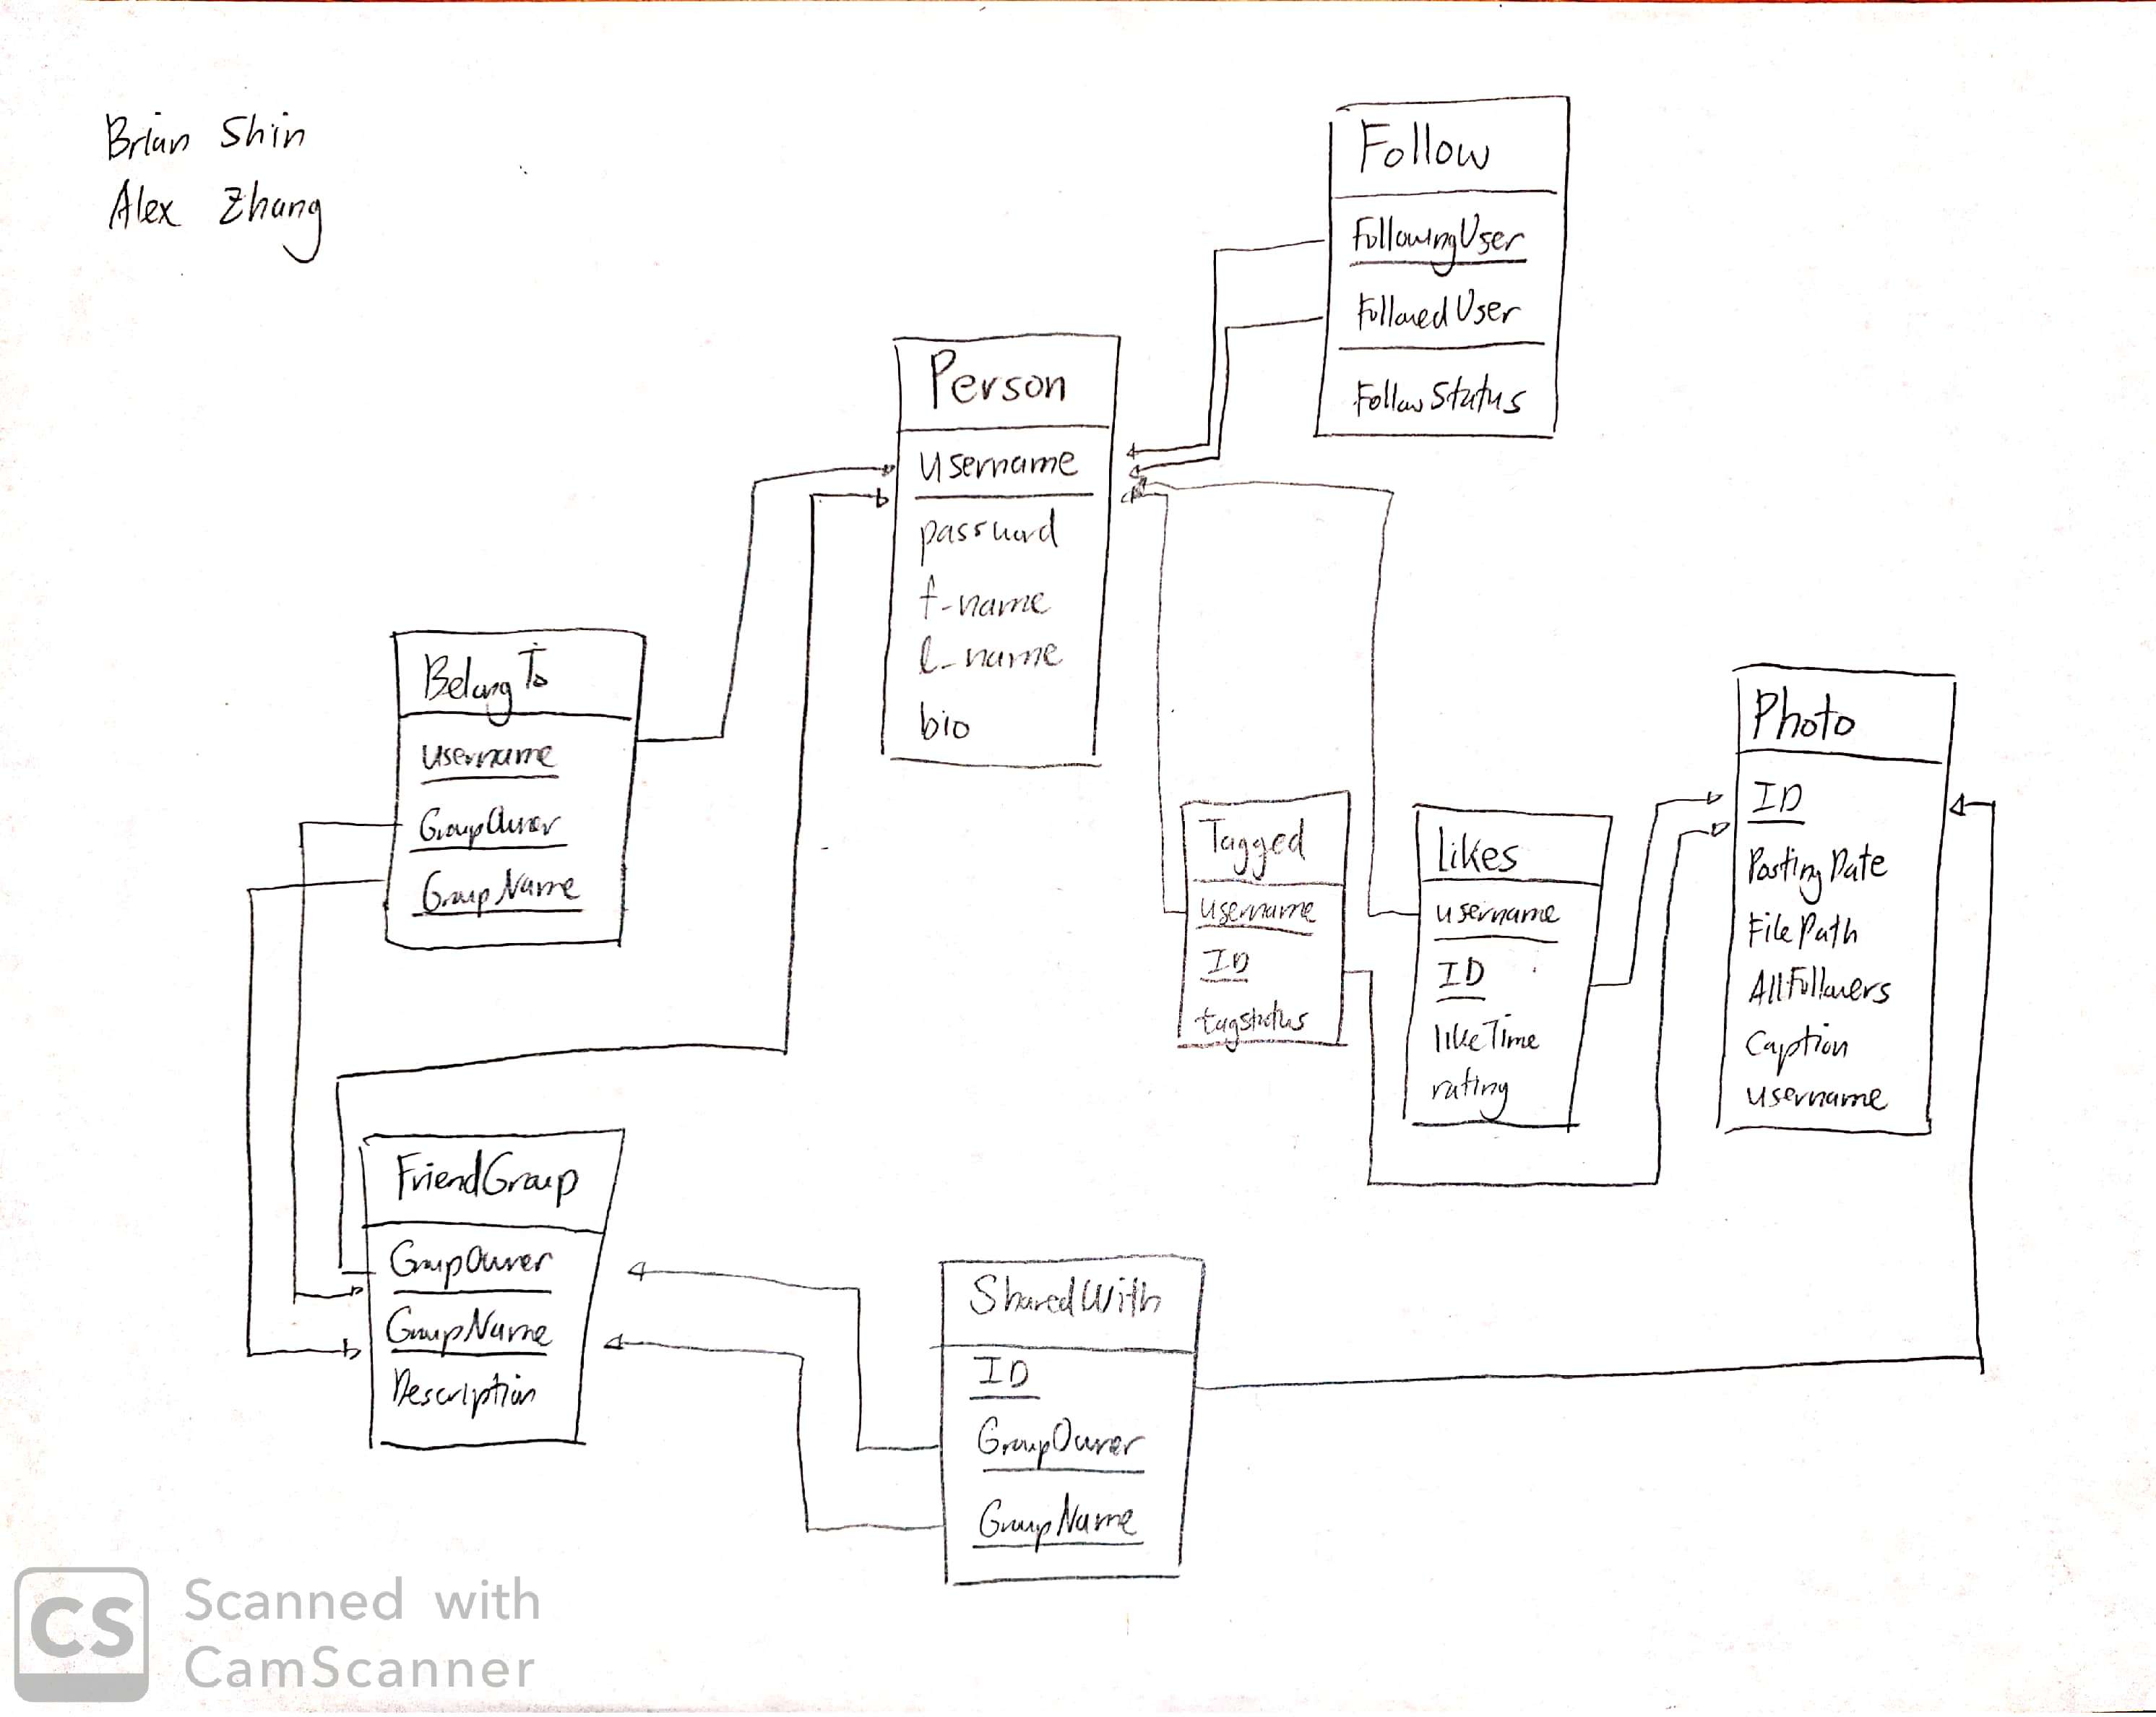 Brian Shin
Alex Zhang
Follow
FollowingUser
FollowedUser
FollowStatus
Person
username
password
f-name
l-name
bio
BelongTo
username
GroupOwner
GroupName
Tagged
username
ID
tagstatus
likes
username
ID
likeTime
rating
Photo
ID
PostingDate
FilePath
AllFollowers
Caption
username
FriendGroup
GroupOwner
GroupName
Description
SharedWith
ID
GroupOwner
GroupName
CS
Scanned with
CamScanner